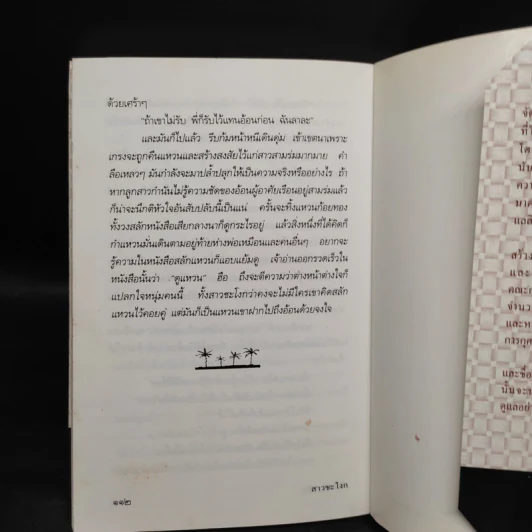 ด้วยเศร้าๆ
"ถ้าเขาไม่รับ พี่ก็รับไว้แทนอ้อนก่อน ฉันลาละ"
และมันก็ไปแล้ว รีบก้มหน้าหนีเดินดุ่ม เข้าเขตนาเพราะ
เกรงจะถูกคืนแหวนและสร้างสงสัยไว้แก่สาวสามร่มมากมาย คำ
ลือเหลวๆ มันกำลังจะมาปล้ำปลุกให้เป็นความจริงหรืออย่างไร ถ้า
หากลูกสาวกำนันไม่รู้ความชัดของอ้อนผู้อาศัยเรือนอยู่สามร่มแล้ว
ก็น่าจะนึกติหัวใจอันสับปลับนี้เป็นแน่ ครั้นจะทิ้งแหวนก้อยทอง
ทั้งวงสลักหนังสือเสียกลางนาก็ดูกระไรอยู่ แล้วสิ่งหนึ่งที่ได้คิดก็
กำแหวนมั่นเดินตามอยู่ท้ายห่างพ่อเหมือนและคนอื่นๆ อยากจะ
รู้ความในหนังสือสลักแหวนก็แอบแย้มดู เจ้าอ่านออกรวดเร็วใน
หนังสือนั้นว่า "ดูแหวน" ฮือ ถึงจะตีความว่าต่างหน้าต่างใจก็
แปลกใจหนุ่มคนนี้ ทั้งสาวชะโงกว่าคงจะไม่มีใครเขาคิดสลัก
แหวนไว้คอยคู่ แต่มันก็เป็นแหวนเขาฝากไปถึงอ้อนด้วยจงใจ
๑๑๒
สาวชะโงก